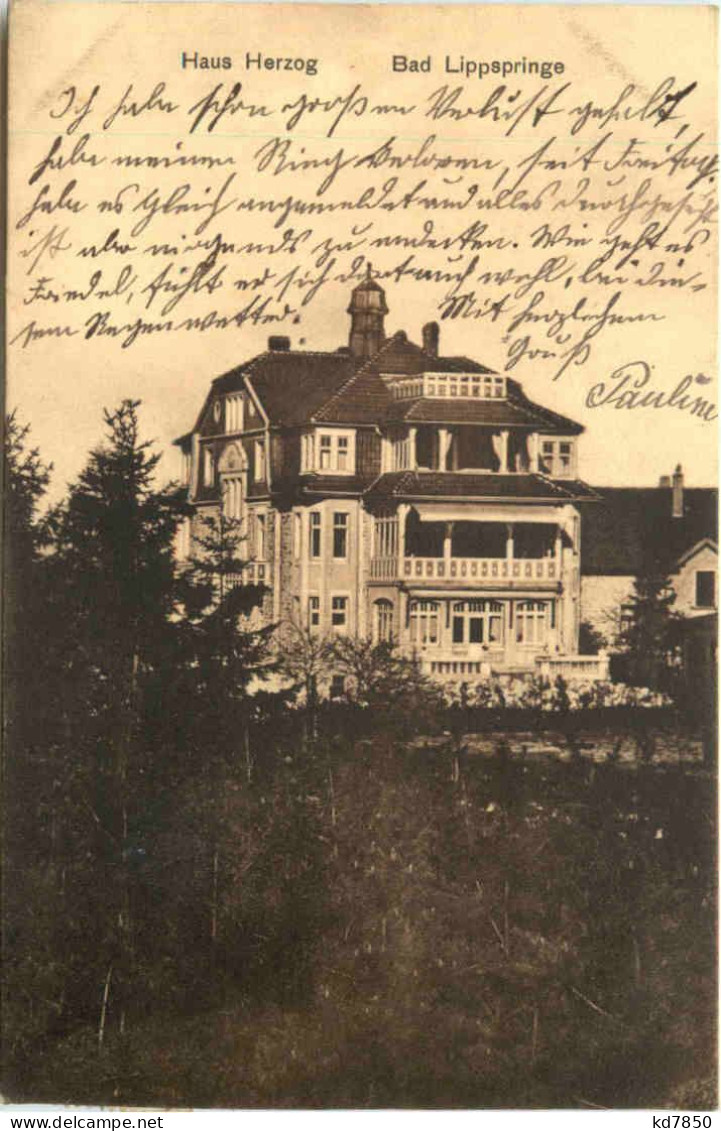 Haus Herzog Bad Lippspringe
Ich habe schon großen Verlust gehabt,
habe meinen Ring verloren, seit Freitag,
habe es Gleich angemeldet und alles durchgesucht
ist aber nirgends zu endecken. Wie geht es
Friedel, fühlt er sich dort auch wohl, bei die-
sem Regenwetter.
Mit herzlichem
Gruß
Pauline
kd7850